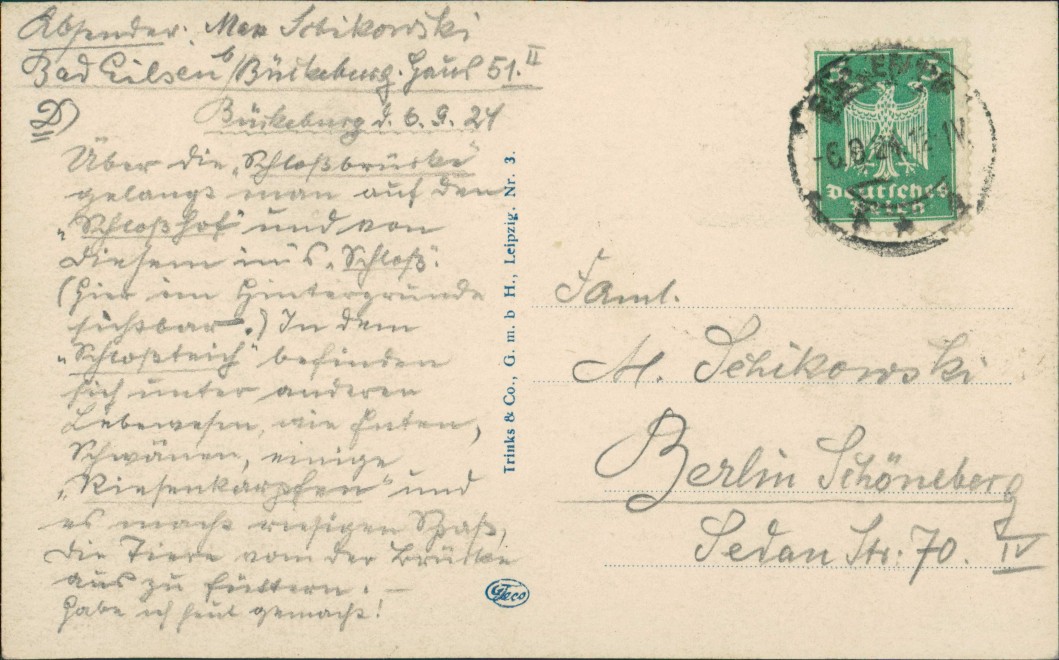 Absender: Max Schikowski
Bad Eilsen b/Bückeburg. Haus 51. II
D)
Bückeburg d. 6. 9. 24
Über die „Schloßbrücke"
gelangt man auf den
„Schloßhof" und von
diesem in's „Schloß".
(Hier im Hintergrunde
sichtbar.) In dem
„Schloßteich" befinden
sich unter anderen
Lebewesen, wie Enten,
Schwänen, einige
„Riesenkarpfen" und
es macht riesigen Spaß,
die Tiere von der Brücke
aus zu füttern. –
Habe ich heut gemacht!
Trinks & Co., G. m. b H., Leipzig. Nr. 3.
Teco
5 5
Deutsches
Reich
-6.9.24
Faml.
M. Schikowski
Berlin Schöneberg
Sedan Str. 70. IV